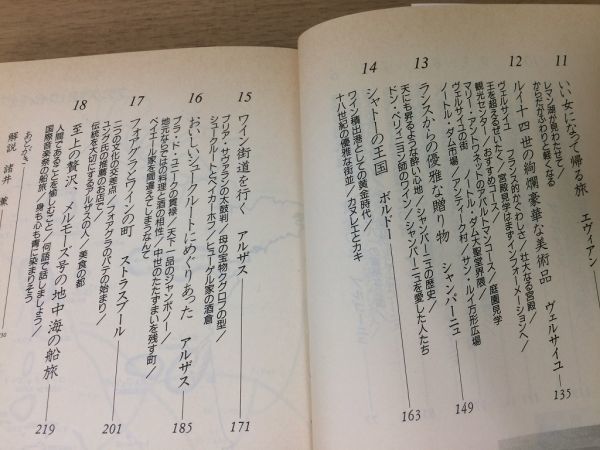 11
いい女になって帰る旅 エヴィアン 135
レマン湖が見わたせて/
からだがふわりと軽くなる
12
ルイ十四世の絢爛豪華な美術品 ヴェルサイユ 149
ヴェルサイユ フランス的かぐわしさ/壮大なる宮殿/
王を超えるぜいたく/宮殿見学はまずインフォーメーションへ/
観光センター/おすすめコース/庭園見学
マリー・アントワネットのアパルトマン/
ヴェルサイユの街 ノートル・ダム大聖堂界隈/
ノートル・ダム市場/アンティーク村/サン・ルイ方形広場
13
ランスからの優雅な贈り物 シャンパーニュ 163
天にも昇るような酔い心地/シャンパーニュの歴史/
ドン・ペリィニヨン師のワイン/シャンパーニュを愛した人たち
14
シャトーの王国 ボルドー
ワイン積出港としての黄金時代/
十八世紀の優雅な街並/カヌレエとカキ
15
ワイン街道を行く アルザス 171
ブリア・サヴァランの太鼓判/母の宝物クグロフの型/
シュークルートとベイカーホフ/ヒューゲル家の酒倉
16
おいしいシュークルートにめぐりあった アルザス 185
ブラ・ド・ユニークの貫禄/天下一品のジャンボノー/
地元ならではの料理と酒の相性/中世のたたずまいを残す町/
ベイエール家を間違えてしまうなんて
17
フォアグラとワインの町 ストラスブール 201
二つの文化の交差点/フォアグラのパテの始まり/
ユング氏の推薦のお店で/
伝統を大切にするアルザスの人/美食の都
18
至上の贅沢、メルモーズ号の地中海の船旅 219
人間であることを愉しむこと/何語で話しましょう/
国際音楽祭の船旅/身も心も青に染まりそう
あとがき
解説 諸井 薫